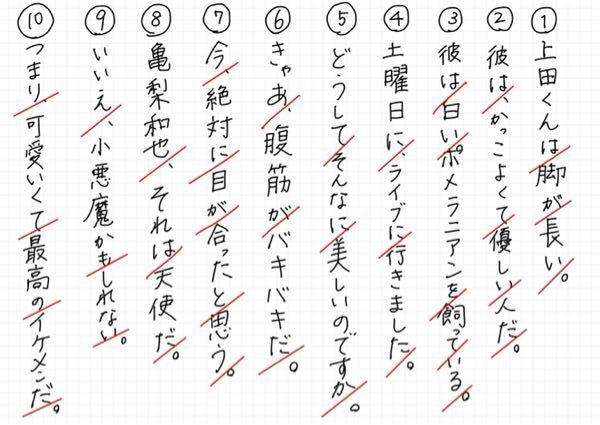 ① 上田くんは脚が長い。
② 彼は、かっこよくて優しい人だ。
③ 彼は白いポメラニアンを飼っている。
④ 土曜日に、ライブに行きました。
⑤ どうしてそんなに美しいのですか。
⑥ きゃあ、腹筋がバキバキだ。
⑦ 今、絶対に目が合ったと思う。
⑧ 亀梨和也、それは天使だ。
⑨ いいえ、小悪魔かもしれない。
⑩ つまり、可愛いくて最高のイケメンだ。